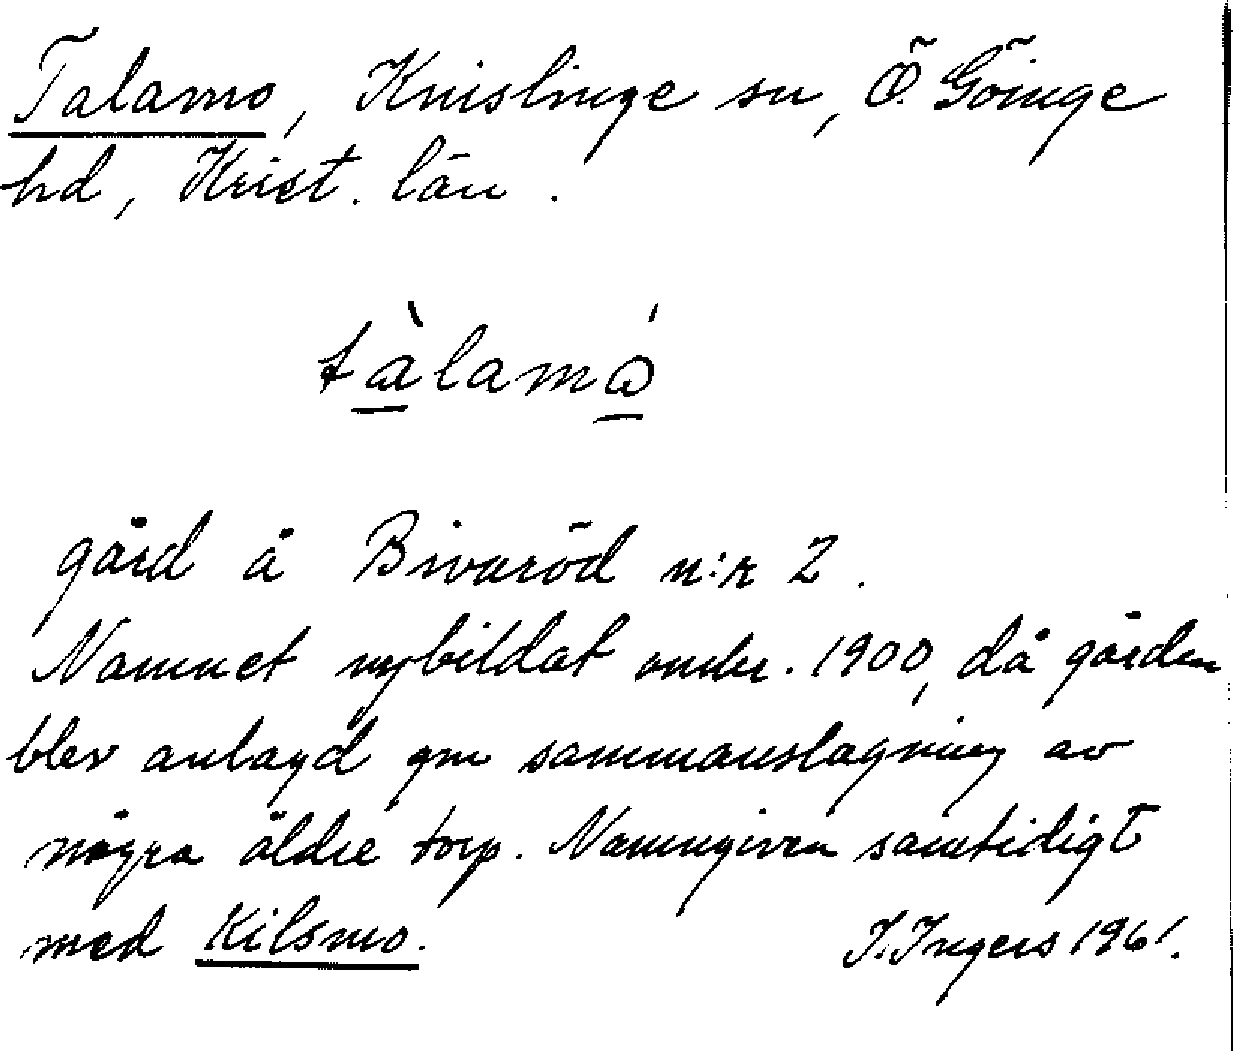 Talamo, Knislinge sn, Ö. Göinge
hd, Krist. län.
tàlamó
gård å Bivaröd n:r 2.
Namnet nybildat under. 1900, då gården
blev anlagd gm sammanslagning av
några äldre torp. Namngiven samtidigt
med Kilsmo.
I. Ingers 1961.